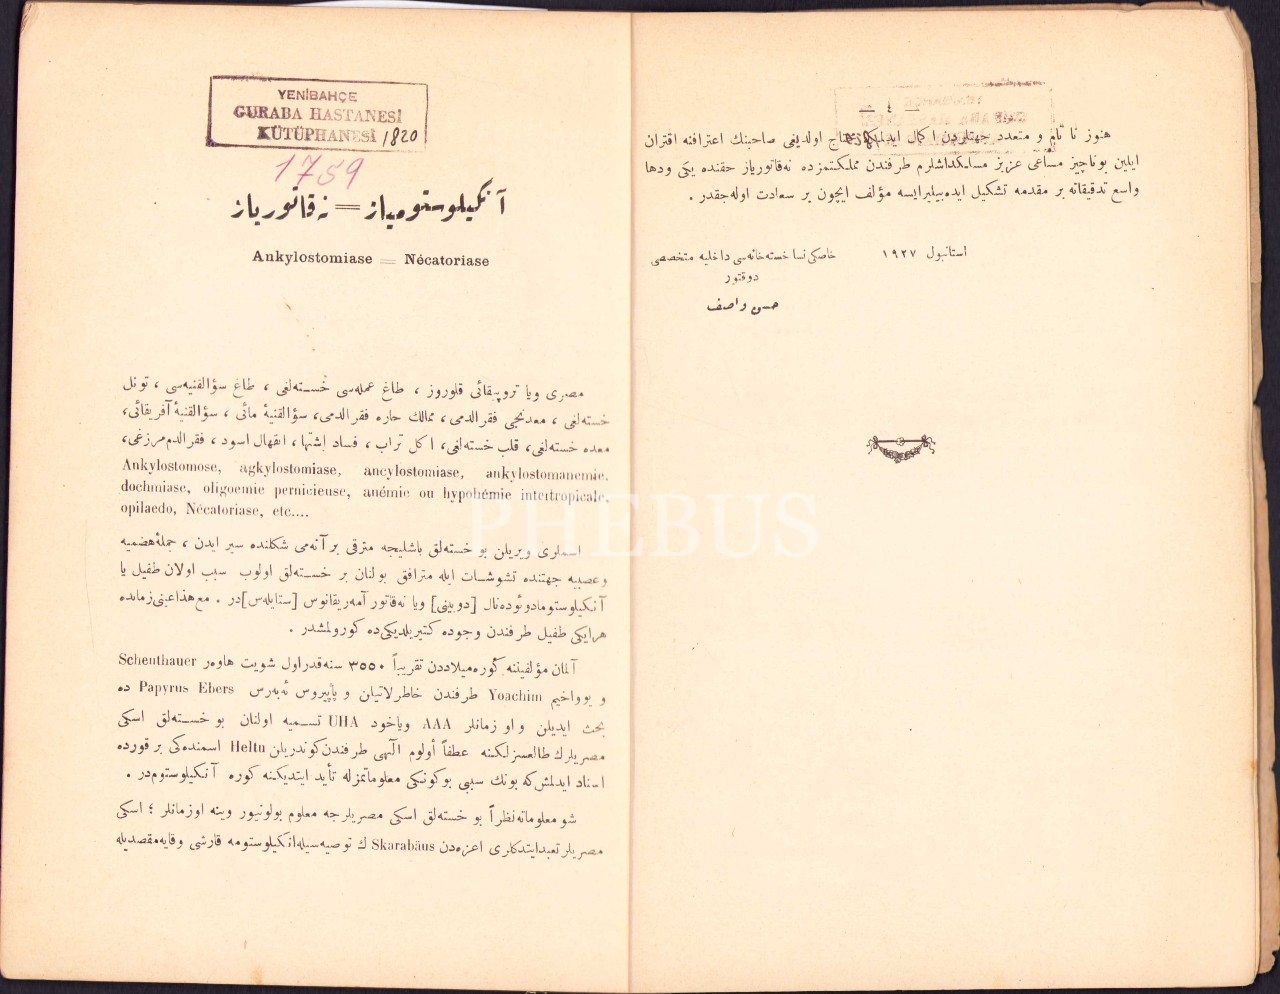 — ٤ —
هنوز نا تام و متعدد جهتلردن اكمال ايدلمكه محتاج اولديغى صاحبنك اعترافنه اقتران
ايلين بوناچيز مساعى عزيز مسلكداشلرم طرفندن مملكتمزده نه‌قاتورياز حقنده يكى ودها
واسع تدقيقاته بر مقدمه تشكيل ايده‌بيليرايسه مؤلف ايچون بر سعادت اوله‌جقدر .
استانبول ١٩٢٧ خاصكى نسا خسته‌خانه‌سى داخليه متخصصى
دوقتور
حسن واصف
YENİBAHÇE
GURABA HASTANESİ
KÜTÜPHANESİ 1820
1759
آنكيلوستوميياز = نه‌قاتورياز
Ankylostomiase = Nécatoriase
مصرى ويا تروپيقائى قلوروز ، طاغ عمله‌سى خسته‌لغى ، طاغ سؤالقنيه‌سى ، تونل
خسته‌لغى ، معدنجى فقرالدمى ، ممالك حاره فقرالدمى، سؤالقنيۀ مائى ، سؤالقنيۀ آفريقائى،
معده خسته‌لغى، قلب خسته‌لغى، اكل تراب ، فساد اشتها، انقهال اسود ، فقرالدم مرزغى،
Ankylostomose, agkylostomiase, ancylostomiase, ankylostomanemie,
dochmiase, oligoemie pernicieuse, anémie ou hypohémie intertropicale,
opilaedo, Nécatoriase, etc....
اسملرى ويريلن بو خسته‌لق باشليجه مترقى بر آنه‌مى شكلنده سير ايدن ، جملۀ هضميه
وعصبيه جهتنده تشوشات ايله مترافق بولنان بر خسته‌لق اولوب سبب اولان طفيل يا
آنكيلوستومادوئوده‌نال [دوبينى] ويا نه‌قاتور آمه‌ريقانوس [ستايله‌س]در . مع‌هذا عينى زمانده
هرايكى طفيل طرفندن وجوده كتيريلديكى ده كورولمشدر .
آلمان مؤلفيننه كوره ميلاددن تقريباً ٣٥٥٠ سنه قدر اول شويت هاوه‌ر Scheuthauer
و يوواخيم Yoachim طرفندن خاطرلاتيلان و پاپيروس ئه‌به‌رس Papyrus Ebers ده
بحث ايديلن و او زمانلر AAA وياخود UHA تسميه اولنان بو خسته‌لق اسكى
مصريلرك طالعسزلكينه عطفاً أولوم الٓهى طرفندن كوندريلن Heltu اسمنده‌كى بر قورده
اسناد ايدلمش كه بونك سببى بوكونكى معلوماتمزله تأيد ايتديكينه كوره آنكيلوستوم‌در .
شو معلوماته نظراً بو خسته‌لق اسكى مصريلرجه معلوم بولونيور وينه اوزمانلر ؛ اسكى
مصريلر تعبد ايتدكلرى اعزه‌دن Skarabäus ك توصيه‌سيله آنكيلوستومه قارشى وقايه مقصديله
PHEBUS